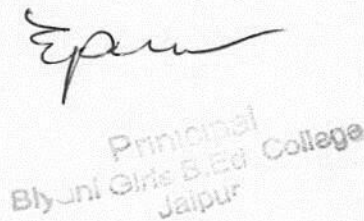 Principal
Biyani Girls B.Ed College
Jaipur